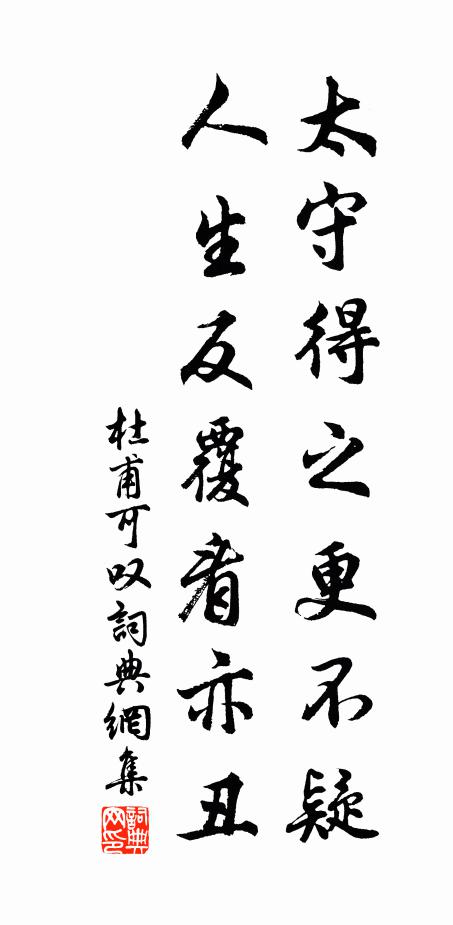 太守得之更不疑
人生反覆者亦丑
杜甫可叹詞典網集
詞典网印